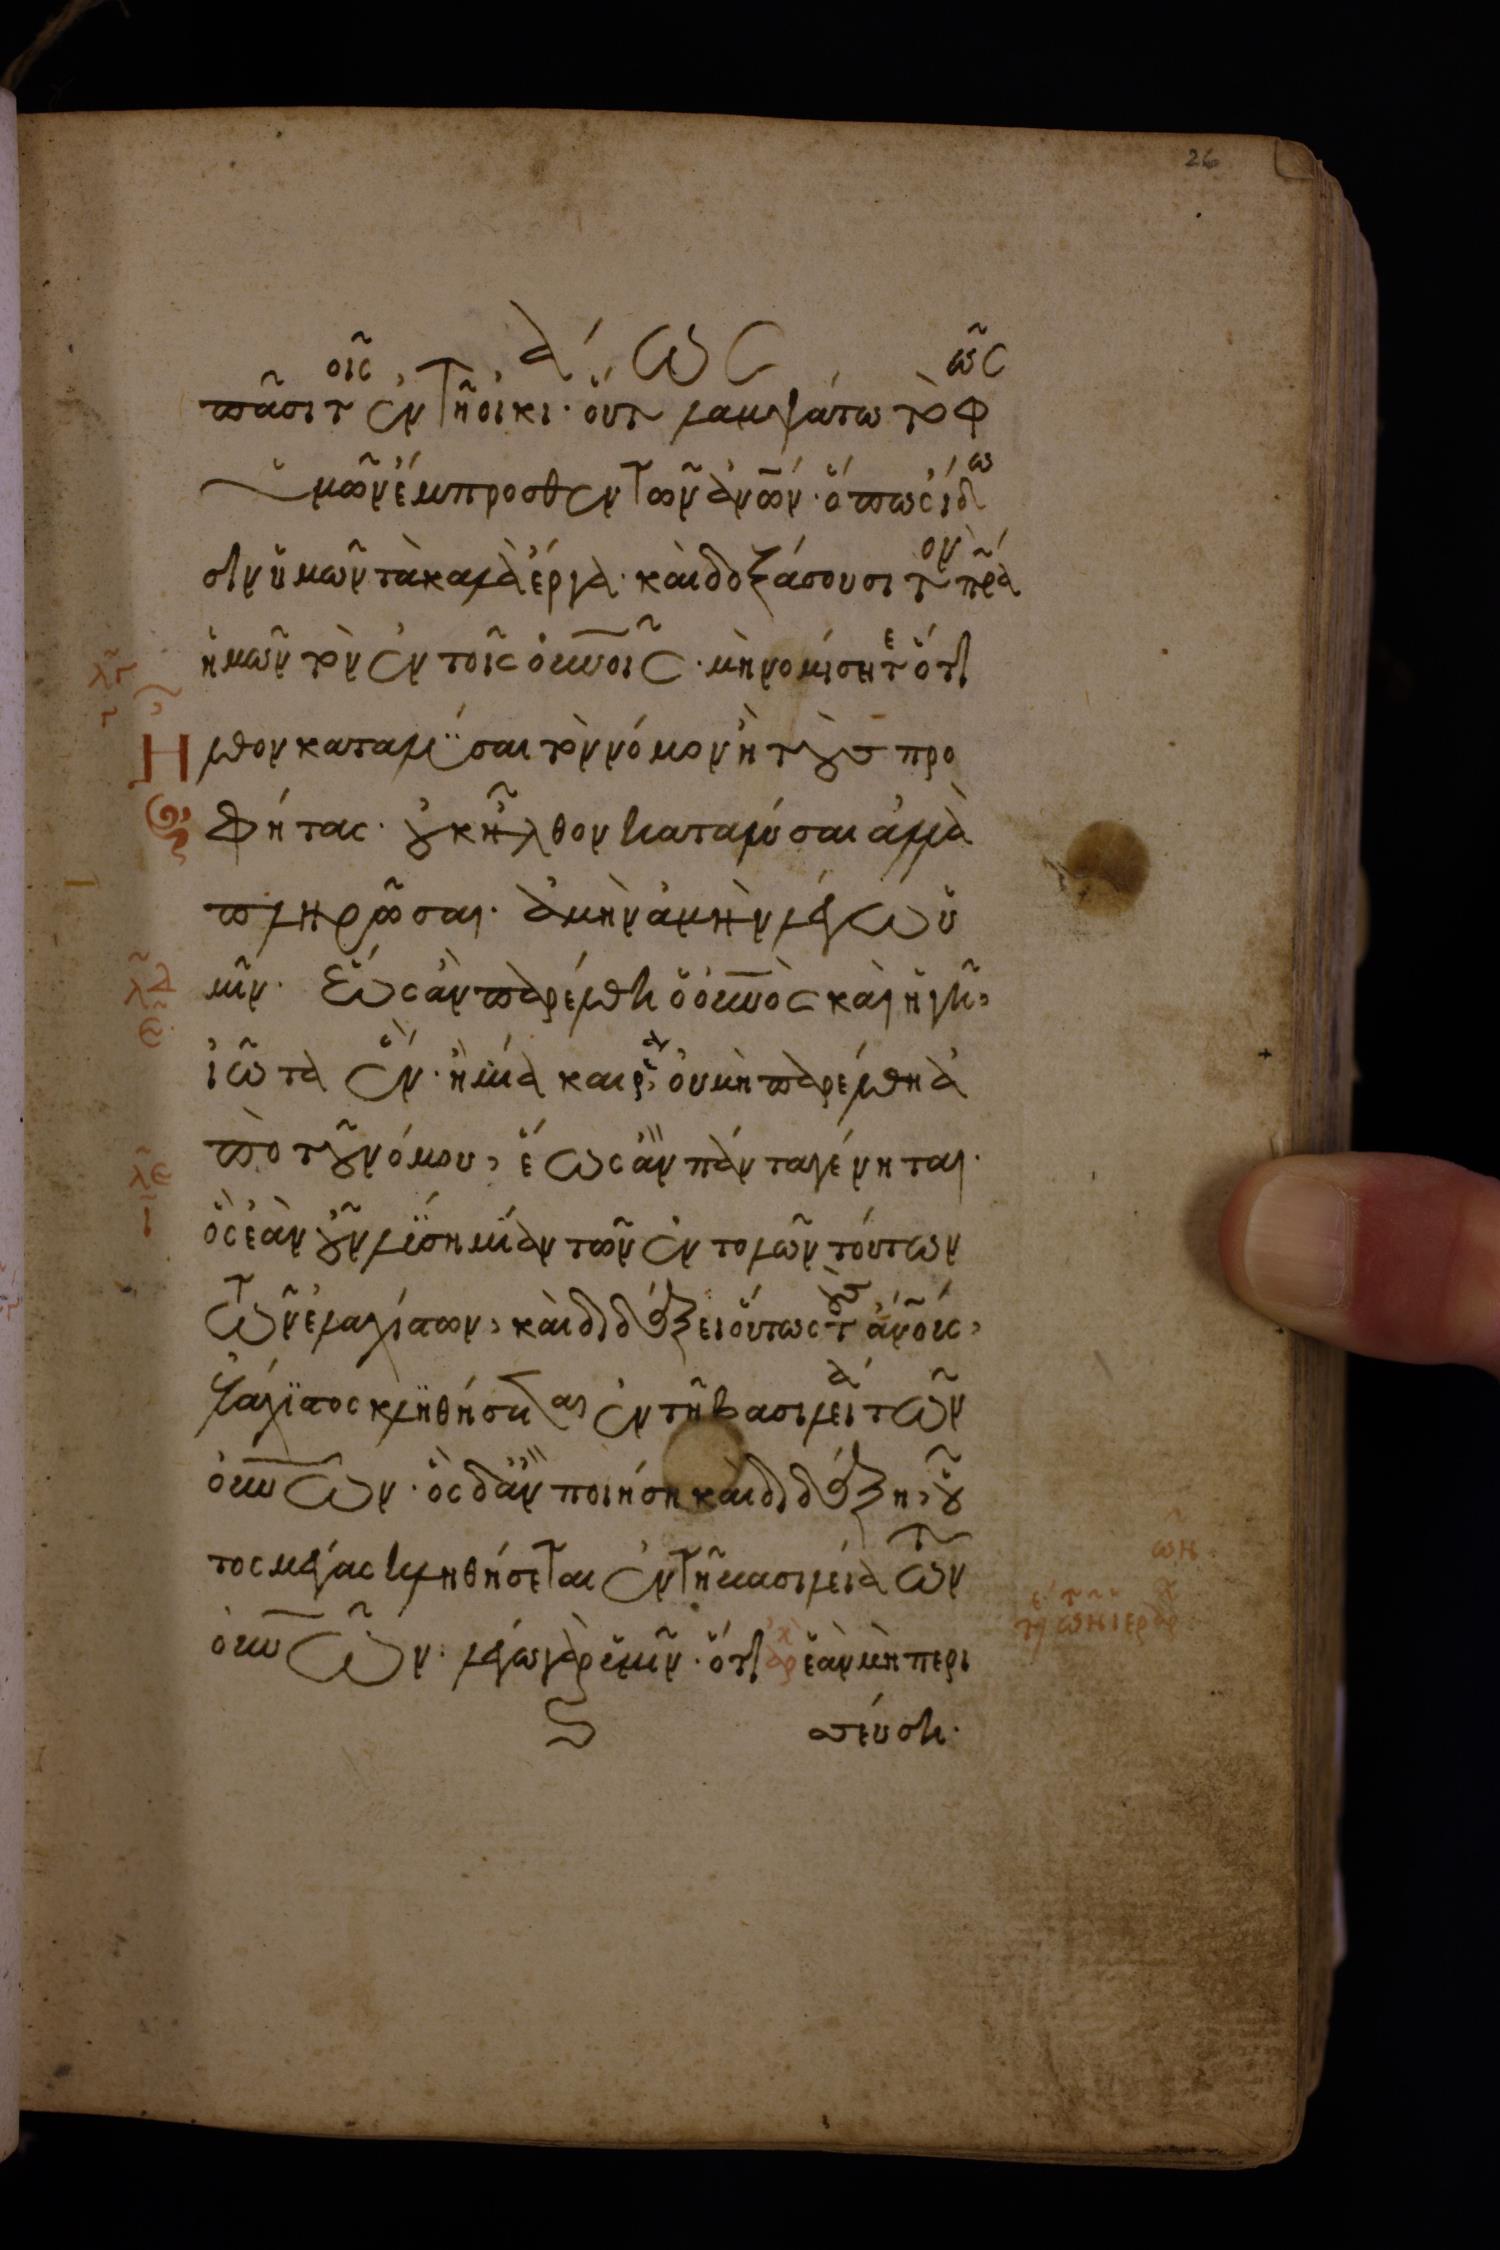 26
πᾶσι τοῖς ἐν τῇ οἰκίᾳ· οὕτως λαμψάτω τὸ φῶς
ὑμῶν ἔμπροσθεν τῶν ἀνῶν· ὅπως ἴδω
σιν ὑμῶν τὰ καλὰ ἔργα· καὶ δοξάσουσι τὸν πρα
ἡμῶν τὸν ἐν τοῖς οὐνοις· μὴ νομίσητε ὅτι
ἦλθον καταλῦσαι τὸν νόμον ἢ τοὺς προ
φήτας· οὐκ ἦλθον καταλῦσαι ἀλλὰ
πληρῶσαι· ἀμὴν ἀμὴν λέγω ὑ
μῖν· ἕως ἂν παρέλθη ὁ οὐνὸς καὶ ἡ γῆ,
ἰῶτα ἓν· ἢ μία κεραία, οὐ μὴ παρέλθη ἀ
πὸ τοῦ νόμου, ἕως ἂν πάντα γένηται·
ὃς ἐὰν οὖν λύση μίαν τῶν ἐντολῶν τούτων
τῶν ἐλαχίστων, καὶ διδάξει οὕτως τοὺς ἀνους,
ἐλάχιστος κληθήσεται ἐν τῇ βασιλείᾳ τῶν
οὐνῶν· ὃς δ' ἂν ποιήση καὶ διδάξη, οὗ
τος μέγας κληθήσεται ἐν τῇ βασιλείᾳ τῶν
οὐνῶν· λέγω γὰρ ὑμῖν· ὅτι ἐὰν μὴ περι
σεύση·